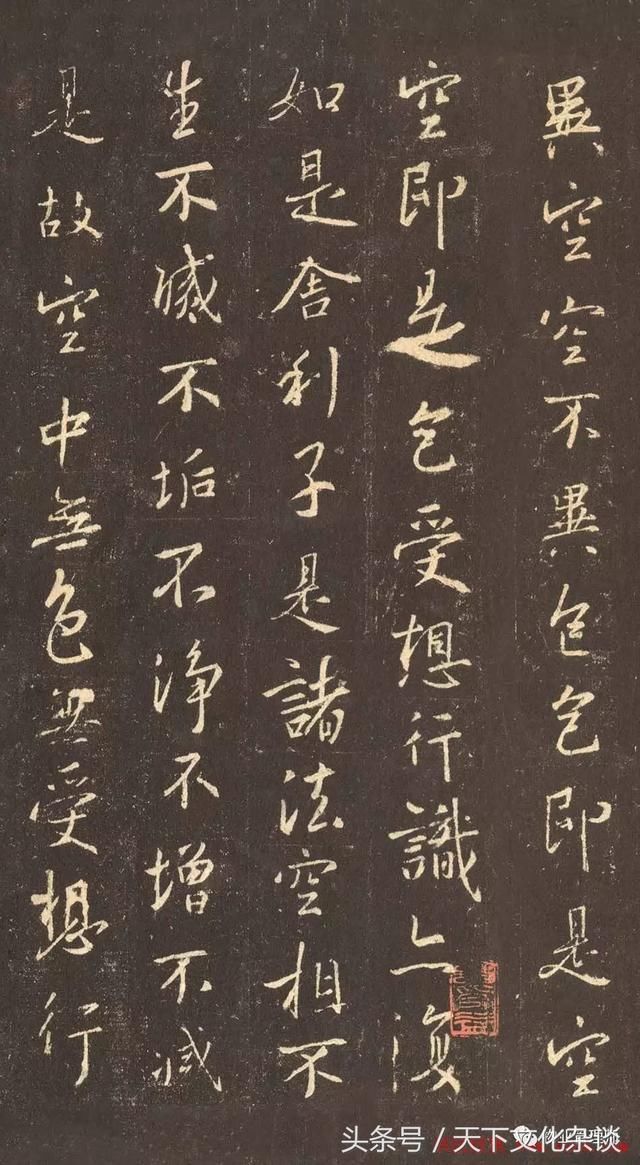 異空空不異色色即是空
空即是色受想行識亦復
如是舍利子是諸法空相不
生不滅不垢不淨不增不減
是故空中無色無受想行
头条号／天下文化杂谈